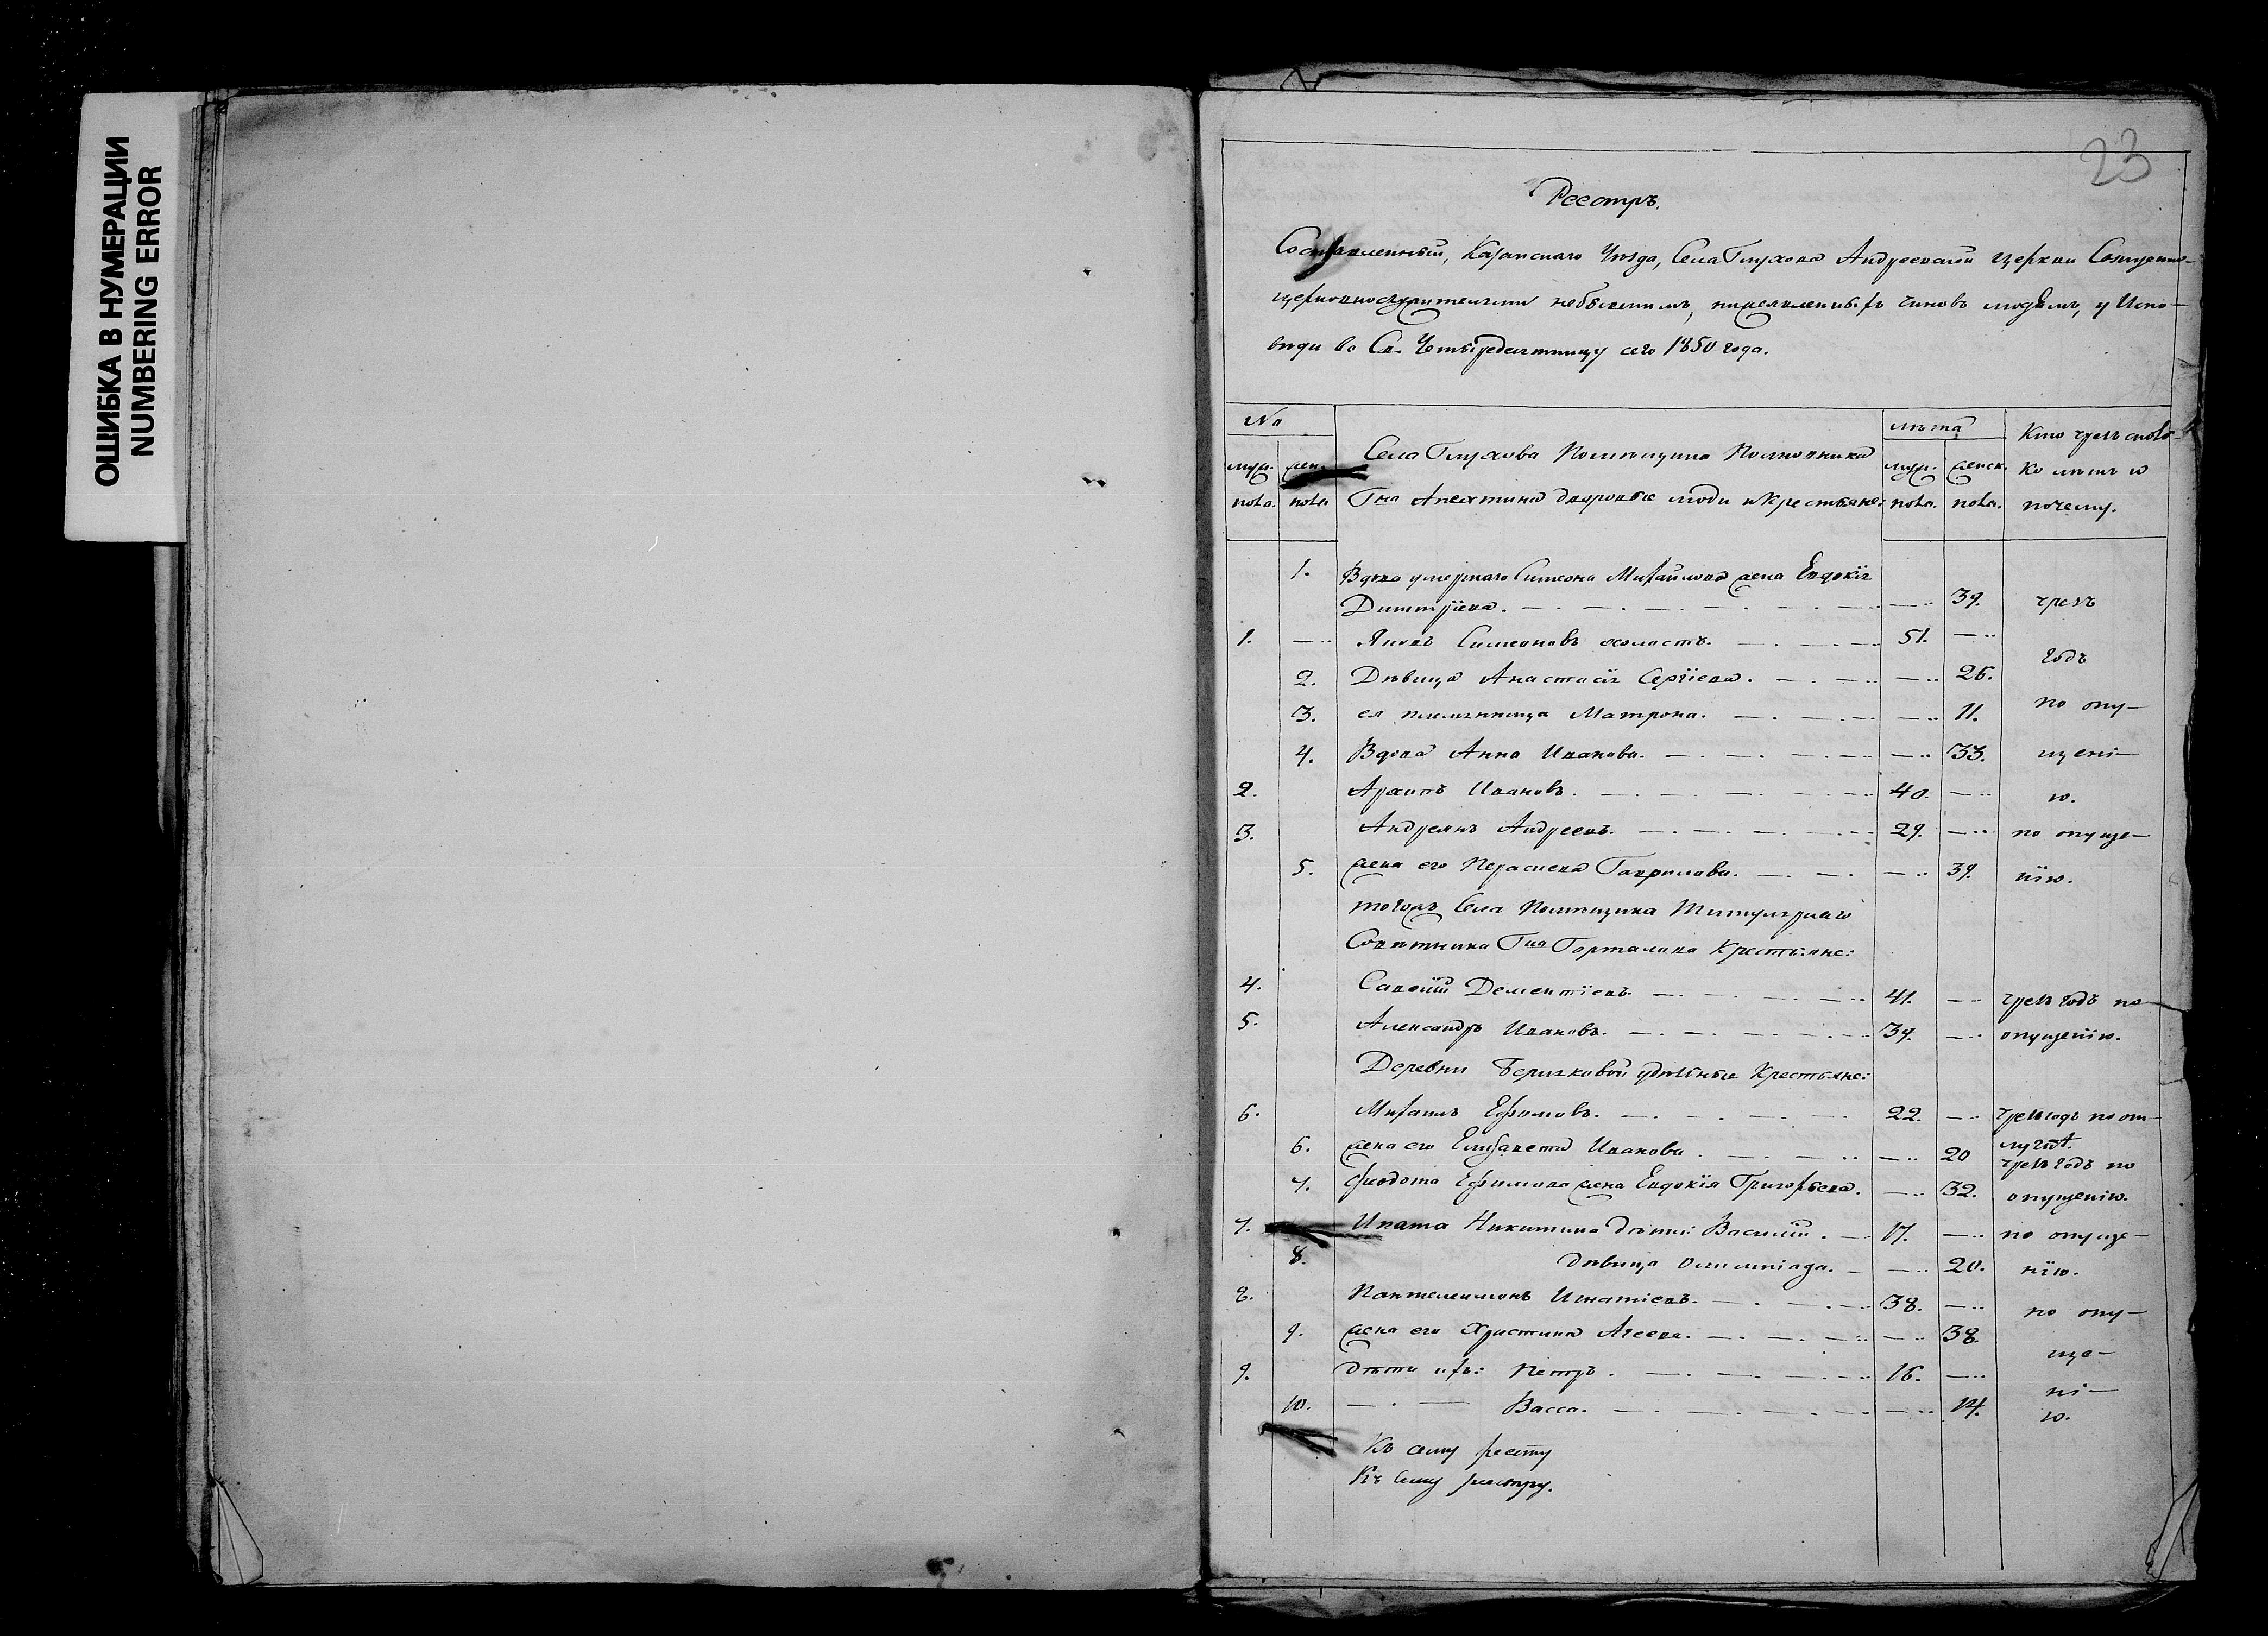 ОШИБКА В НУМЕРАЦИИ
NUMBERING ERROR
23
Реестръ.
Составленный, Казанскаго Уѣзда, Села Глухова Андреевской церкви Священно-
церковнослужителями небывшимъ, нижеявленныхъ чиновъ людемъ, у Испо-
вѣди во Св. Четыредесятницу сего 1850 года.
№ Села Глухова Помѣщика Полковника лѣта Кто чрезъ сколь-
муж. жен. муж. женск. ко лѣтъ и
пола. пола. Гна Апехтина дворовые люди и Крестьяне: пола. пола. почему.
1. Вдова умершаго Симеона Михайлова жена Евдокія
Димитріева. 39. чрезъ
1. Яковъ Симеоновъ холостъ. 51.
годъ
2. Дѣвица Анастасія Сергіева. 26.
3. ея племянница Матрона. 11. по опу-
4. Вдова Анна Иванова. 33. щені-
2. Архипъ Ивановъ. 40. ю.
3. Андреянъ Андреевъ. 29. по опуще-
5. жена его Параскева Гаврилова. 39. нію.
тогожъ Села Помѣщика Титулярнаго
Совѣтника Гна Горталова Крестьяне:
4. Савелій Дементіевъ 41. чрезъ годъ по
5. Александръ Ивановъ. 39. опущенію.
Деревни удѣльные Крестьяне:
6. Михаилъ Ефимовъ. 22. чрезъ годъ по от-
6. жена его Елизавета Иванова. 20 лучкѣ.
чрезъ годъ по
7. Феодота Ефимова жена Евдокія Григорьева. 32. опущенію.
7. Ипата Никитина дѣти: Василій. 17. по опуще-
8. дѣвица Олимпіада. 20. нію.
8. Пантелеимонъ Игнатіевъ. 38. по опу-
9. жена его Христина Агеева. 38.
ще-
9. дѣти ихъ: Петръ. 16.
ні-
10. Васса. 14. ю.
Къ сему реесту
Къ сему реестру.